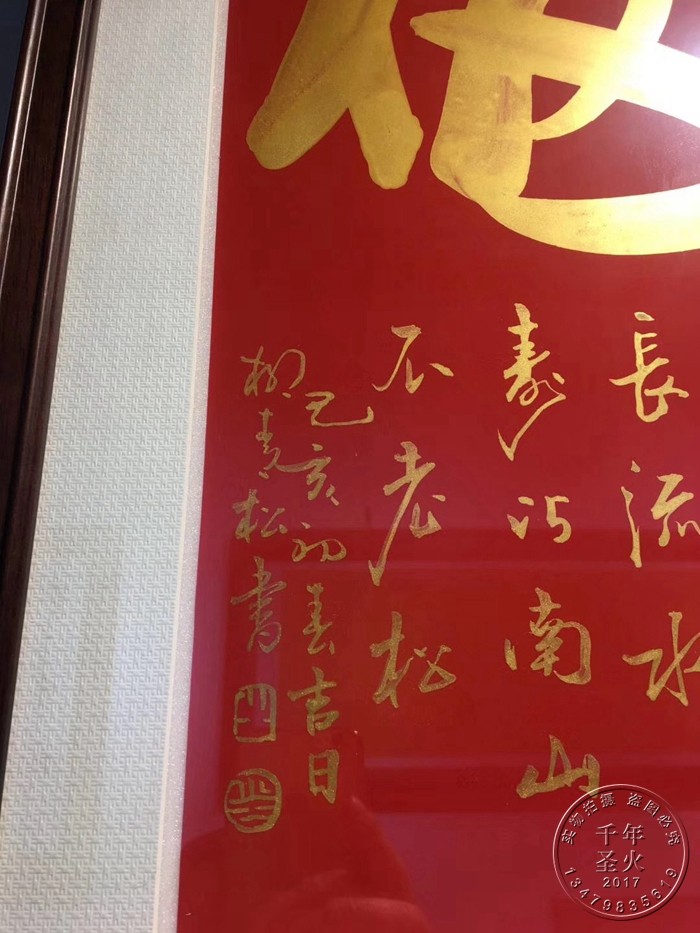 長流水
寿比南山
不老松
己亥初春吉日
柳青松書
实物拍摄 盗图必究
千年
圣火
2017
13479835619